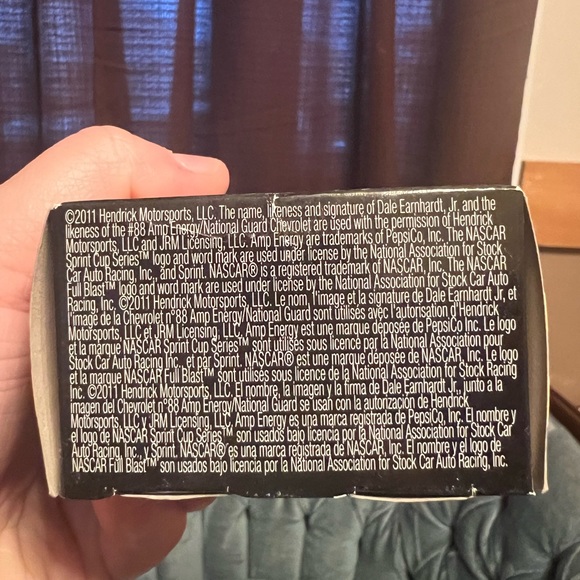 ©2011 Hendrick Motorsports, LLC. The name, likeness and signature of Dale Earnhardt, Jr. and the
likeness of the #88 Amp Energy/National Guard Chevrolet are used with the permission of Hendrick
Motorsports, LLC and JRM Licensing, LLC. Amp Energy are trademarks of PepsiCo, Inc. The NASCAR
Sprint Cup Series™ logo and word mark are used under license by the National Association for Stock
Car Auto Racing, Inc., and Sprint. NASCAR® is a registered trademark of NASCAR, Inc. The NASCAR
Full Blast™ logo and word mark are used under license by the National Association for Stock Car Auto
Racing, Inc. ©2011 Hendrick Motorsports, LLC. Le nom, l'image et la signature de Dale Earnhardt Jr, et
l'image de la Chevrolet n°88 Amp Energy/National Guard sont utilisés avec l'autorisation d'Hendrick
Motorsports, LLC et JRM Licensing, LLC. Amp Energy est une marque déposée de PepsiCo Inc. Le logo
et la marque NASCAR Sprint Cup Series™ sont utilisés sous licence par la National Association pour
Stock Car Auto Racing, Inc., et par Sprint. NASCAR® est une marque déposée de NASCAR, Inc. Le logo
et la marque NASCAR Full Blast™ sont utilisés sous licence de la National Association for Stock Racing
Inc. ©2011 Hendrick Motorsports, LLC. El nombre, la imagen y la firma de Dale Earnhardt Jr., junto a la
imagen del Chevrolet n°88 Amp Energy/National Guard se usan con la autorización de Hendrick
Motorsports, LLC y JRM Licensing, LLC. Amp Energy es una marca registrada de PepsiCo, Inc. El nombre y
el logo de NASCAR Sprint Cup Series™ son usados bajo licencia por la National Association for Stock Car
Auto Racing, Inc., y Sprint. NASCAR® es una marca registrada de NASCAR, Inc. El nombre y el logo de
NASCAR Full Blast™ son usados bajo licencia por la National Association for Stock Car Auto Racing, Inc.